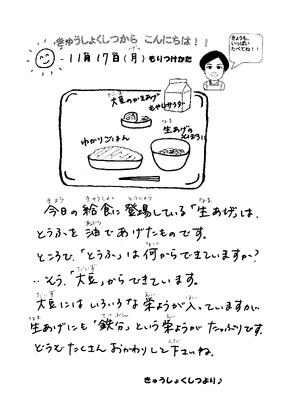 きゅうしょくしつから こんにちは！！
きょうも、
いっぱい
たべてね！！
11月17日(月) もりつけかた
大豆のかきあげ
もやしサラダー
生あげの
そぼろに
ゆかりごはん
今日の給食に登場している「生あげ」は、
とうふを油であげたものです。
ところで、「とうふ」は何からできていますか？
…そう、「大豆」からできています。
大豆にはいろいろな栄ようが入っていますが、
生あげにも「鉄分」という栄ようがたっぷりです。
どうぞたくさんおかわりして下さいね。
きゅうしょくしつより♪